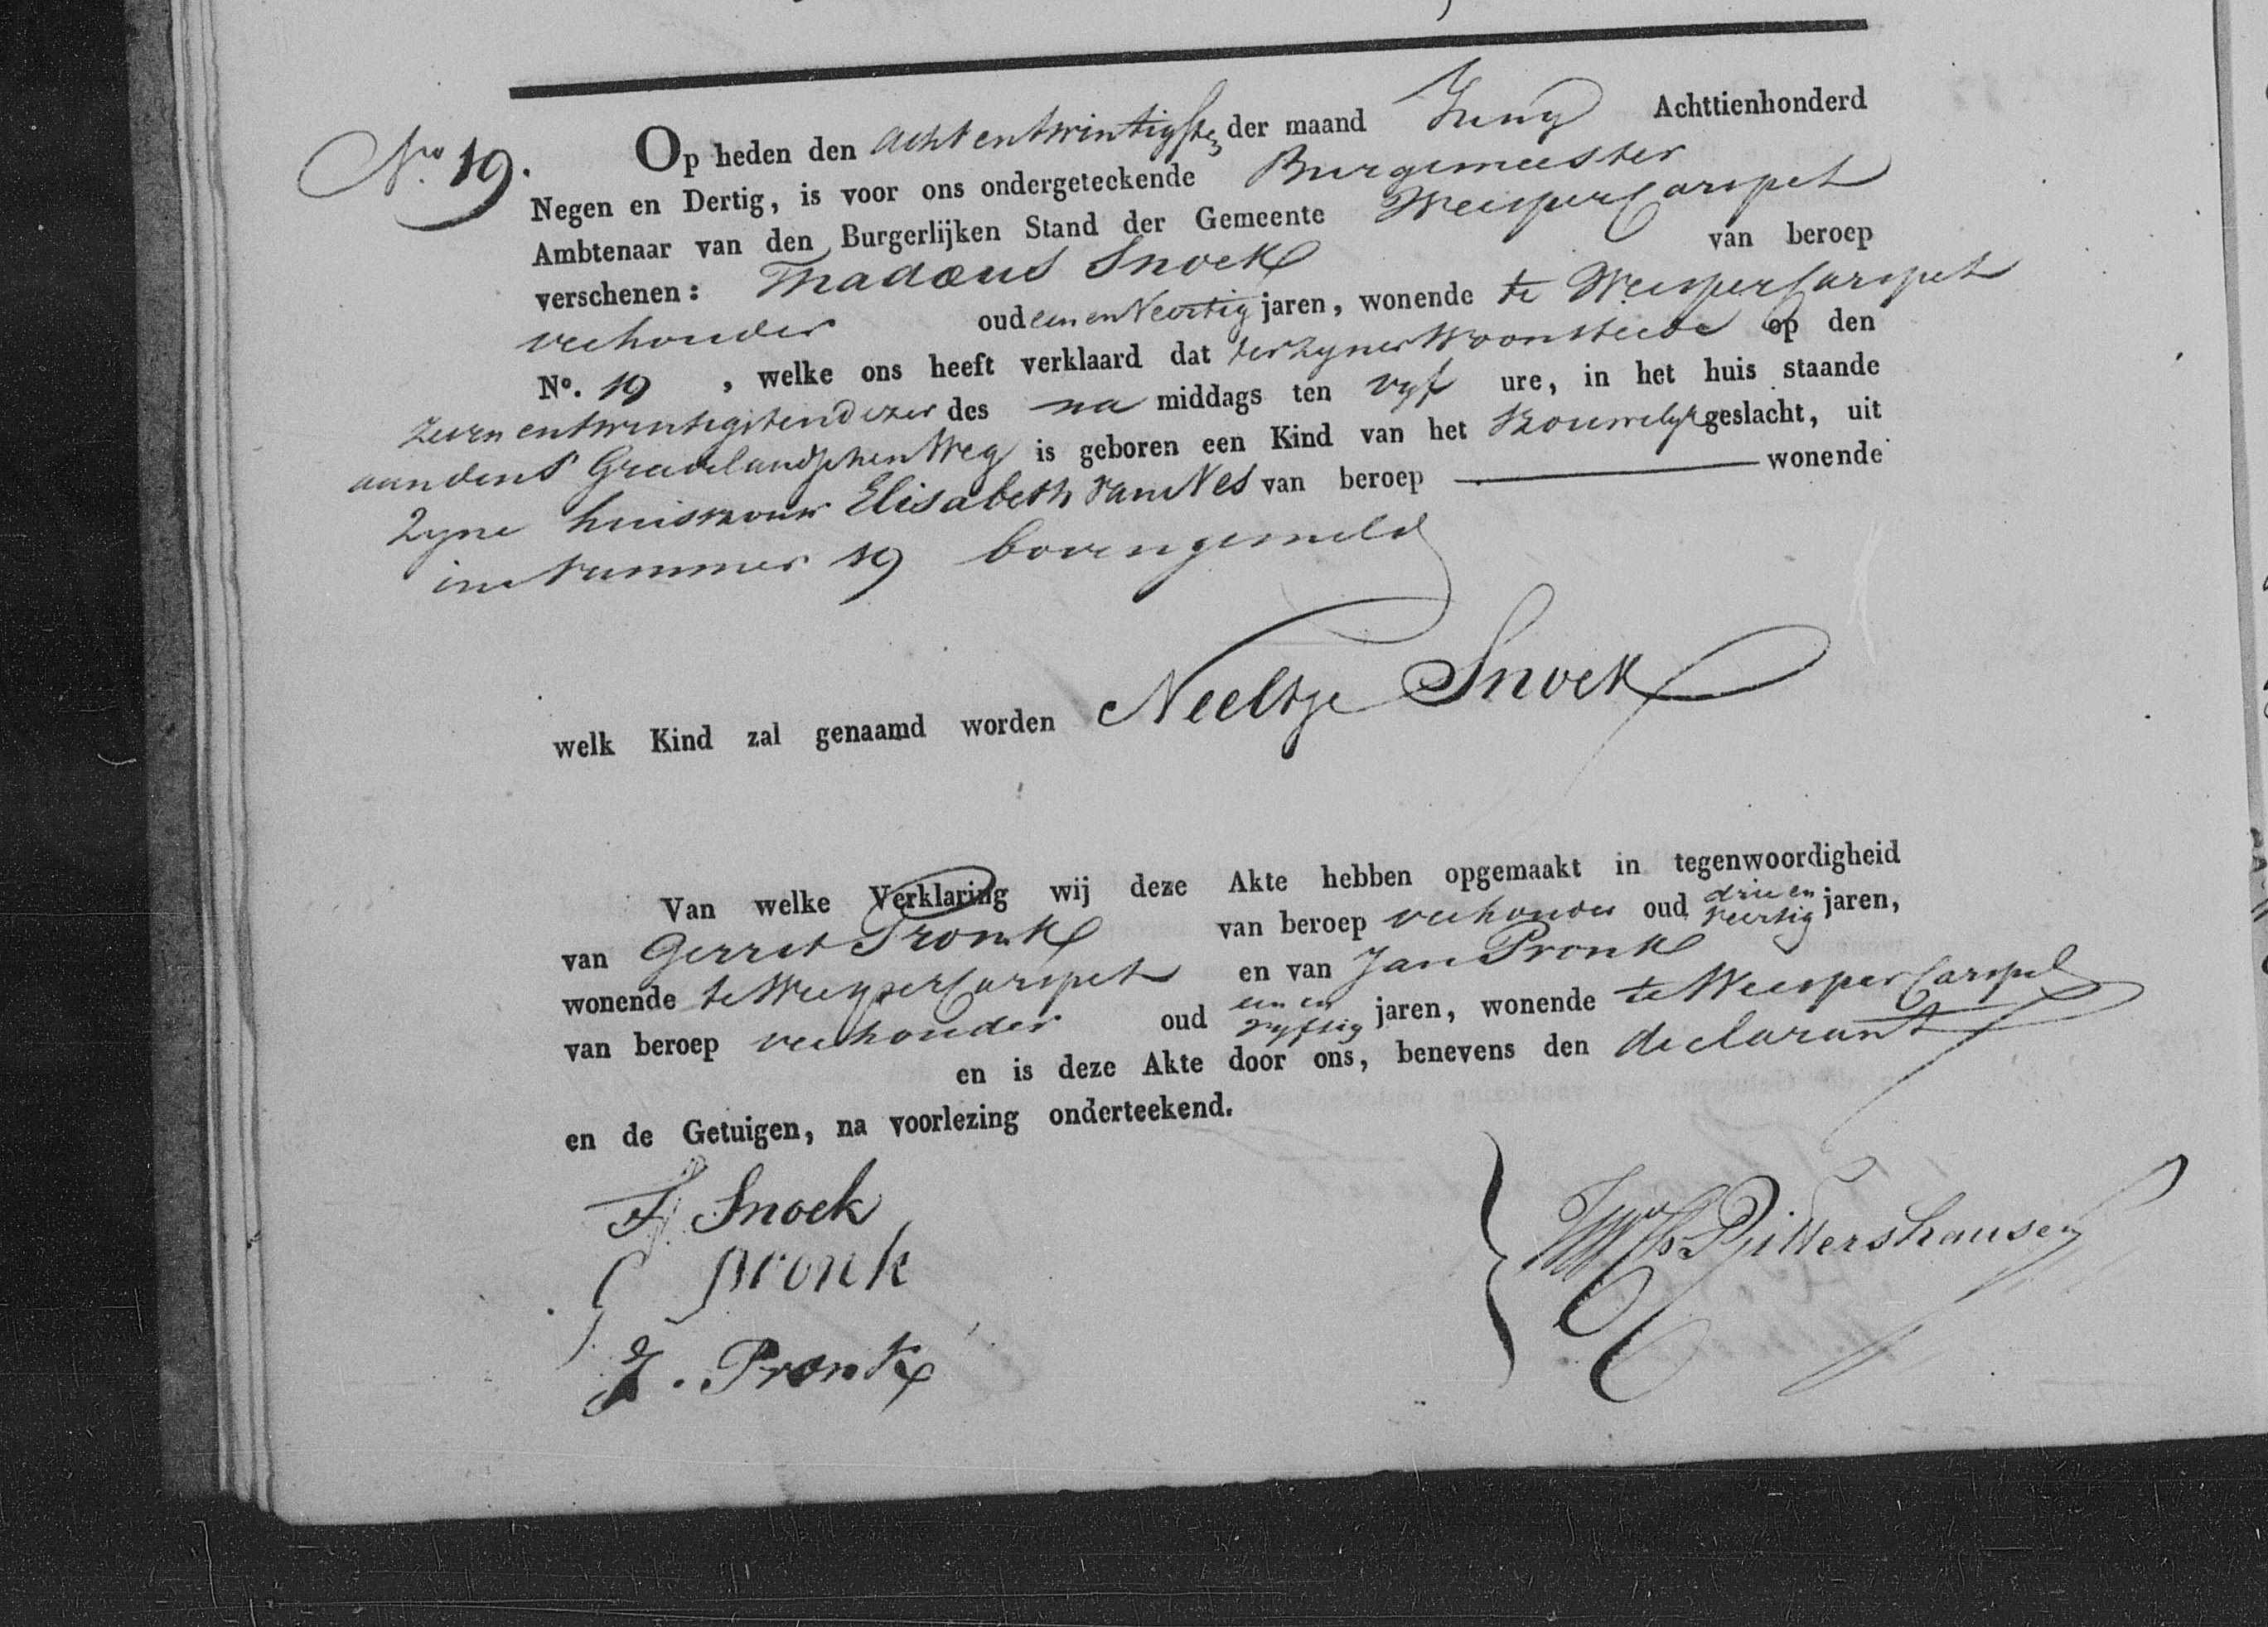 No. 19.
Op heden den achtentwintigste der maand Juny Achttienhonderd
Negen en Dertig, is voor ons ondergeteekende Burgemeester
Ambtenaar van den Burgerlijken Stand der Gemeente WeesperCarspel
verschenen: Thadæus Snoek van beroep
veehouder oud een en Veertig jaren, wonende te WeesperCarspel
No. 19, welke ons heeft verklaard dat ter zyner Woonsteede op den
zeven entwintigsten dezer des na middags ten vyf ure, in het huis staande
aan den 's Gravelandschen Weg is geboren een Kind van het Vrouwelyk geslacht, uit
zyne huisvrouw Elisabeth van Nes van beroep — wonende
in Nummer 19 bovengemeld
welk Kind zal genaamd worden Neeltje Snoek
Van welke Verklaring wij deze Akte hebben opgemaakt in tegenwoordigheid
van Gerrit Pronk van beroep veehouder oud drie en veertig jaren,
wonende te WeesperCarspel en van Jan Pronk
van beroep veehouder oud een en vyftig jaren, wonende te WeesperCarspel
en is deze Akte door ons, benevens den declarant
en de Getuigen, na voorlezing onderteekend.
Snoek
G pronk
J. Pronk